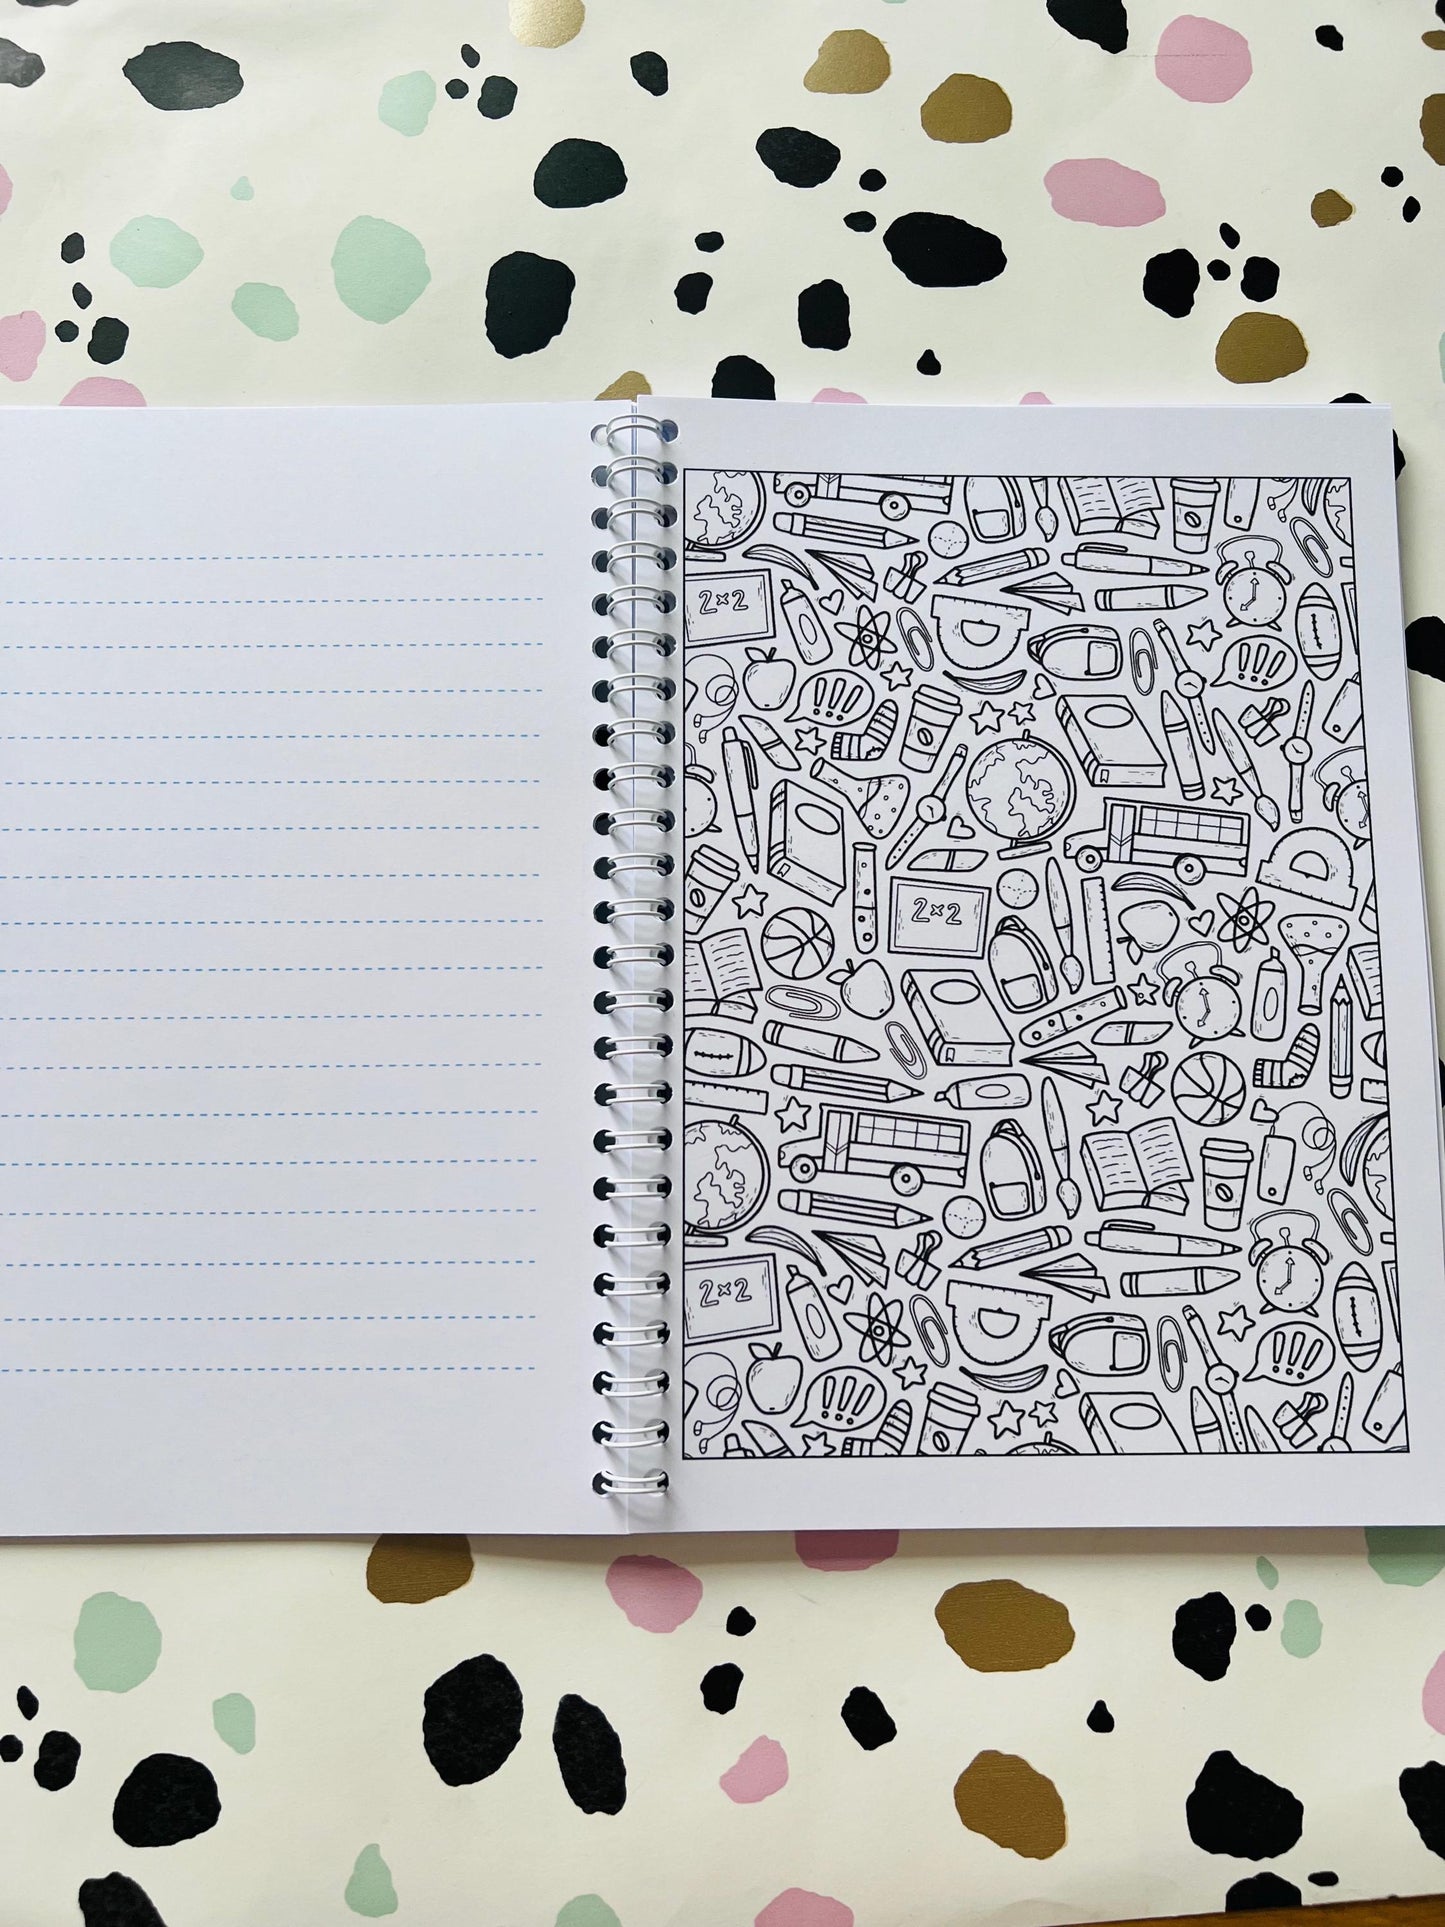 2×2
!!!
!!!
2×2
2×2
!!!
!!!